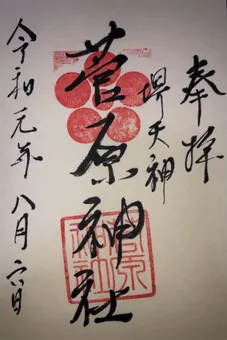 奉拝
堺天神
菅原神社
令和元年八月六日
菅原
神社